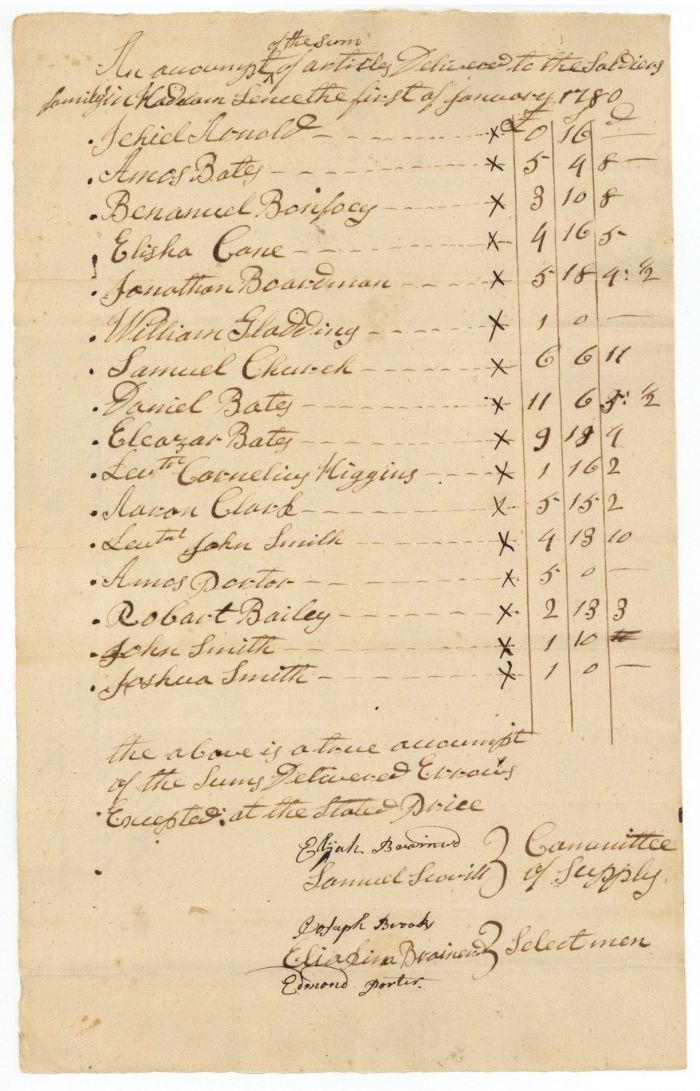 of the sum
An accompt ^ of articles Delivered to the Soldiers
family in Haddam Sence the first of January 1780
£ S d
Jehiel Arnold x 0 16 —
Amos Bates x 5 4 8 —
Benanuel Bonfoey x 3 10 8
Elisha Cone x 4 16 5
Jonathan Boardman x 5 18 4: 1/2
William Gladding x 1 0 —
Samuel Church x 6 6 11
Daniel Bates x 11 6 5: 1/2
Eleazar Bates x 9 18 4
Levtn Cornelius Higgins x 1 16 2
Aaron Clark x 5 15 2
Levtnt John Smith x 4 13 10
Amos Portor x 5 0 —
Robart Bailey x 2 13 3
John Smith x 1 10
Joshua Smith x 1 0 —
the above is a true accompt
of the Sums Delivered Errours
Excepted: at the Stated Price
Elijah Brainerd
Samuel Scovill } Committee
of Supply
Joseph Brooks
Eliakim Brainerd } Select men
Edmond Porter.